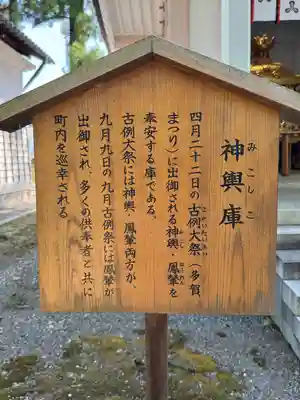 神輿庫
みこしこ
四月二十二日の古例大祭（多賀
まつり）に出御される神輿・鳳輦を
奉安する庫である。
古例大祭には神輿・鳳輦両方が、
九月九日の九月古例祭には鳳輦が
出御され、多くの供奉者と共に
町内を巡幸される。